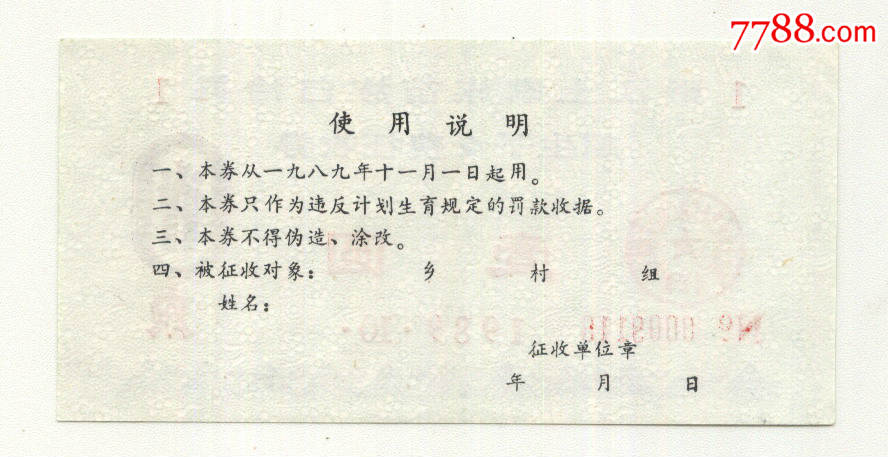 7788.com
使用说明
一、本券从一九八九年十一月一日起用。
二、本券只作为违反计划生育规定的罚款收据。
三、本券不得伪造、涂改。
四、被征收对象： 乡 村 组
姓名：
征收单位章
年 月 日